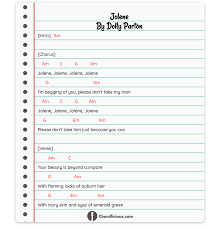 Jolene
By Dolly Parton
[Intro] Am
[Chorus]
Am C G Am
Jolene, Jolene, Jolene, Jolene
G Am
I'm begging of you, please don't take my man
Am C G Am
Jolene, Jolene, Jolene, Jolene
G Em Am
Please don't take him just because you can
[Verse]
Am C G Am
Your beauty is beyond compare
G Am
With flaming locks of auburn hair
G Em Am
With ivory skin and eyes of emerald green
Chordlicious.com